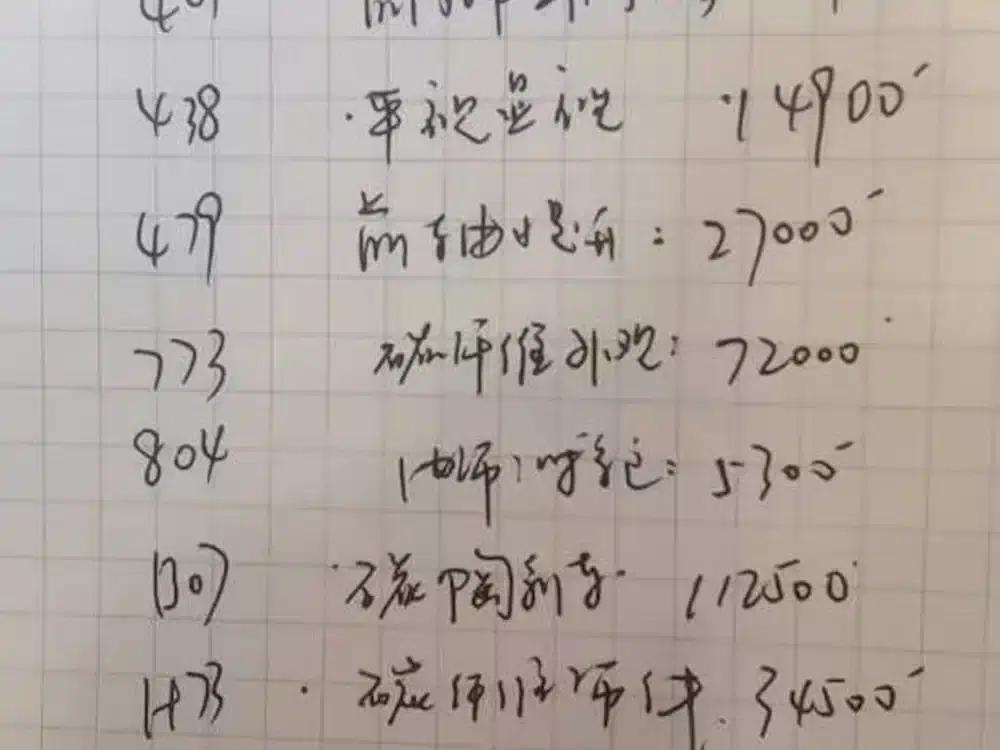 438 · 平视显视 · 14900
479 前轴提升: 27000
773 碳纤维外观: 72000
804 : 5300
1307 · 碳陶刹车 · 112500
1473 · 碳纤维饰件. 34500